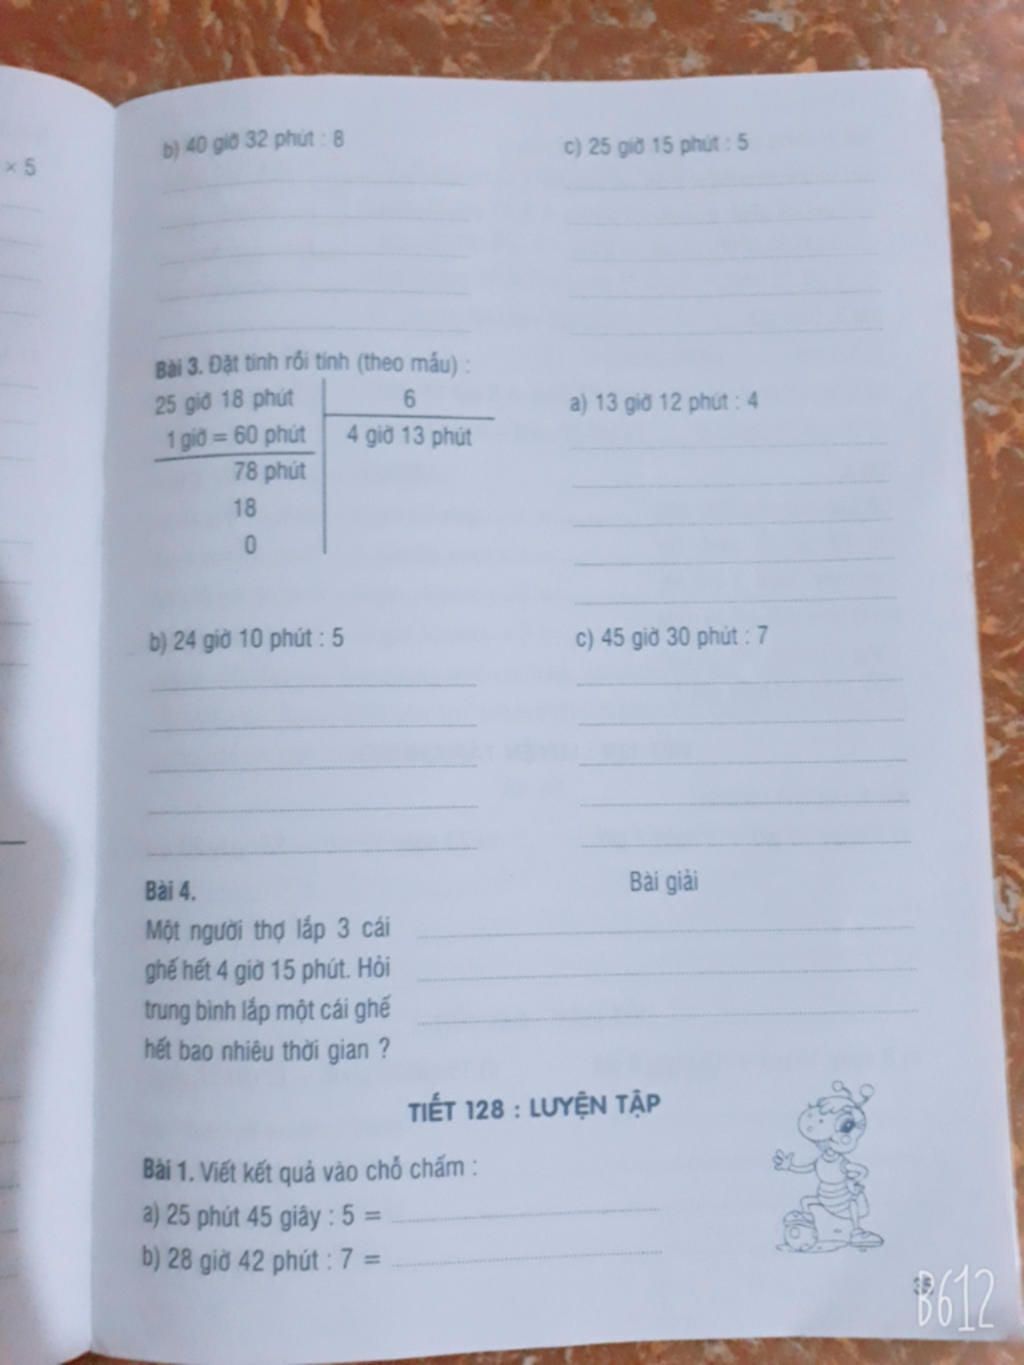 × 5
b) 40 giờ 32 phút : 8
c) 25 giờ 15 phút : 5
Bài 3. Đặt tính rồi tính (theo mẫu) :
25 giờ 18 phút 6
1 giờ = 60 phút 4 giờ 13 phút
78 phút
18
0
a) 13 giờ 12 phút : 4
b) 24 giờ 10 phút : 5
c) 45 giờ 30 phút : 7
Bài 4.
Một người thợ lắp 3 cái
ghế hết 4 giờ 15 phút. Hỏi
trung bình lắp một cái ghế
hết bao nhiêu thời gian ?
Bài giải
TIẾT 128 : LUYỆN TẬP
Bài 1. Viết kết quả vào chỗ chấm :
a) 25 phút 45 giây : 5 =
b) 28 giờ 42 phút : 7 =
B612